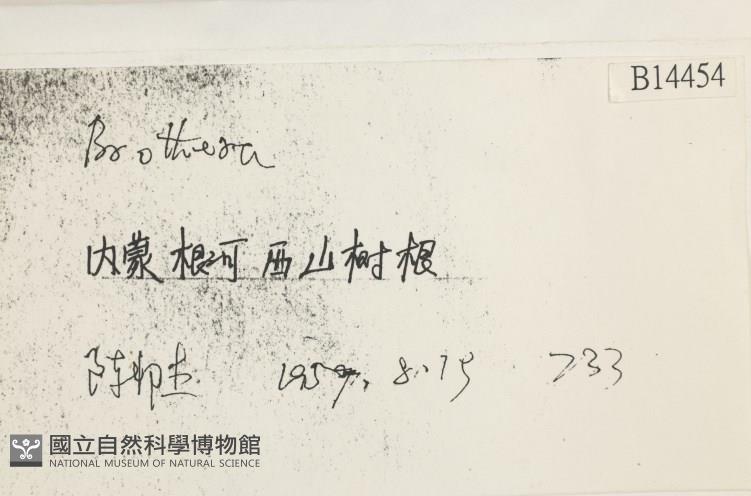 B14454
Brothera
内蒙根河西山树根
陈邦杰 1959. 8.15 733
國立自然科學博物館
NATIONAL MUSEUM OF NATURAL SCIENCE